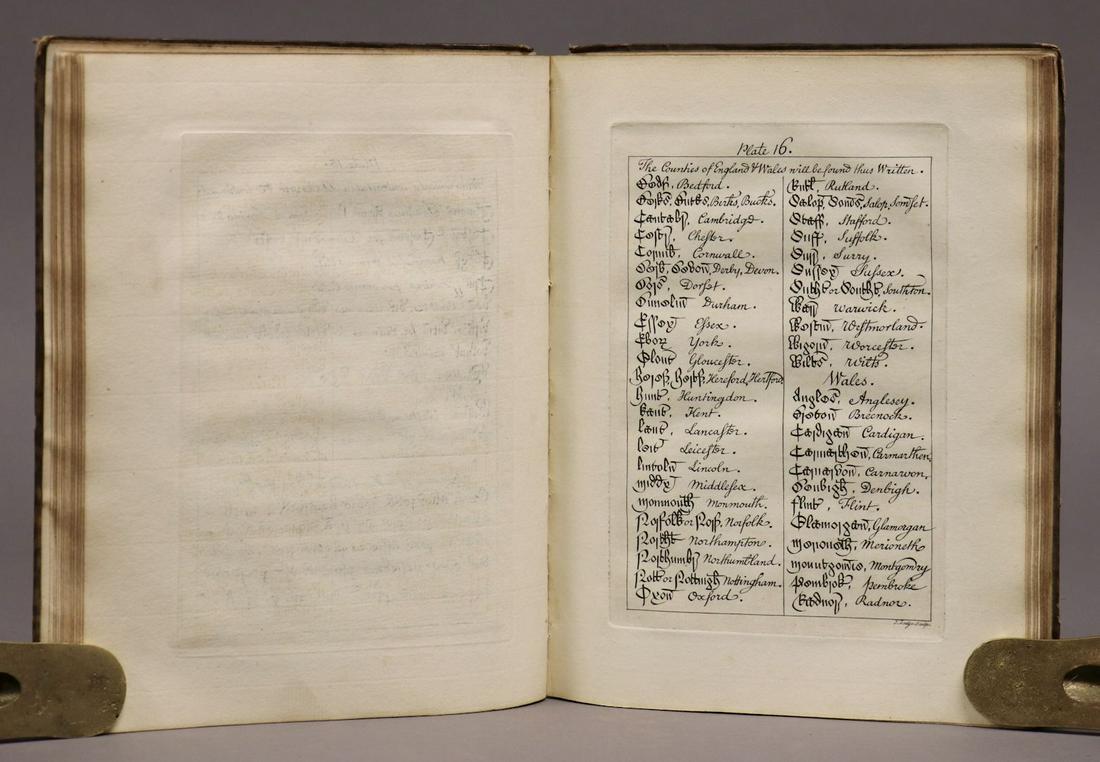 Plate 16.
The Counties of England & Wales will be found thus Written.
Bedf, Bedford.
Berks, Bucks, Berks, Bucks.
Cantab, Cambridge.
Cestr, Chester.
Cornub, Cornwall.
Derb, Devon, Derby, Devon.
Dors, Dorset.
Dunelm Durham.
Essex Essex.
Ebor York.
Glouc Gloucester.
Heref, Hertf, Hereford, Hertford.
Hunt, Huntingdon.
Kanc, Kent.
Lanc, Lancaster.
Leic Leicester.
Lincoln Lincoln.
Middx Middlesex.
Monmouth Monmouth.
Norfolk or Norf, Norfolk.
Northt Northampton.
Northumb Northumbland.
Nott or Nottingh Nottingham.
Oxon Oxford.
Rutl, Rutland.
Salop, Somers, Salop, Somset.
Staff, Stafford.
Suff, Suffolk.
Surr, Surry.
Sussex Sussex.
Sutht or Southt, Southton.
Warr Warwick.
Westm, Westmorland.
Wigorn, Worcester.
Wilts, Wilts.
Wales.
Angles, Anglesey.
Brecon Brecnock.
Cardigan Cardigan.
Carmarthen, Carmarthen.
Carnarvon, Carnarvon.
Denbigh, Denbigh.
Flint, Flint.
Glamorgan, Glamorgan
Merioneth, Merioneth
Mountgomr, Montgomry
Pembrok, Pembroke
Radnor, Radnor.